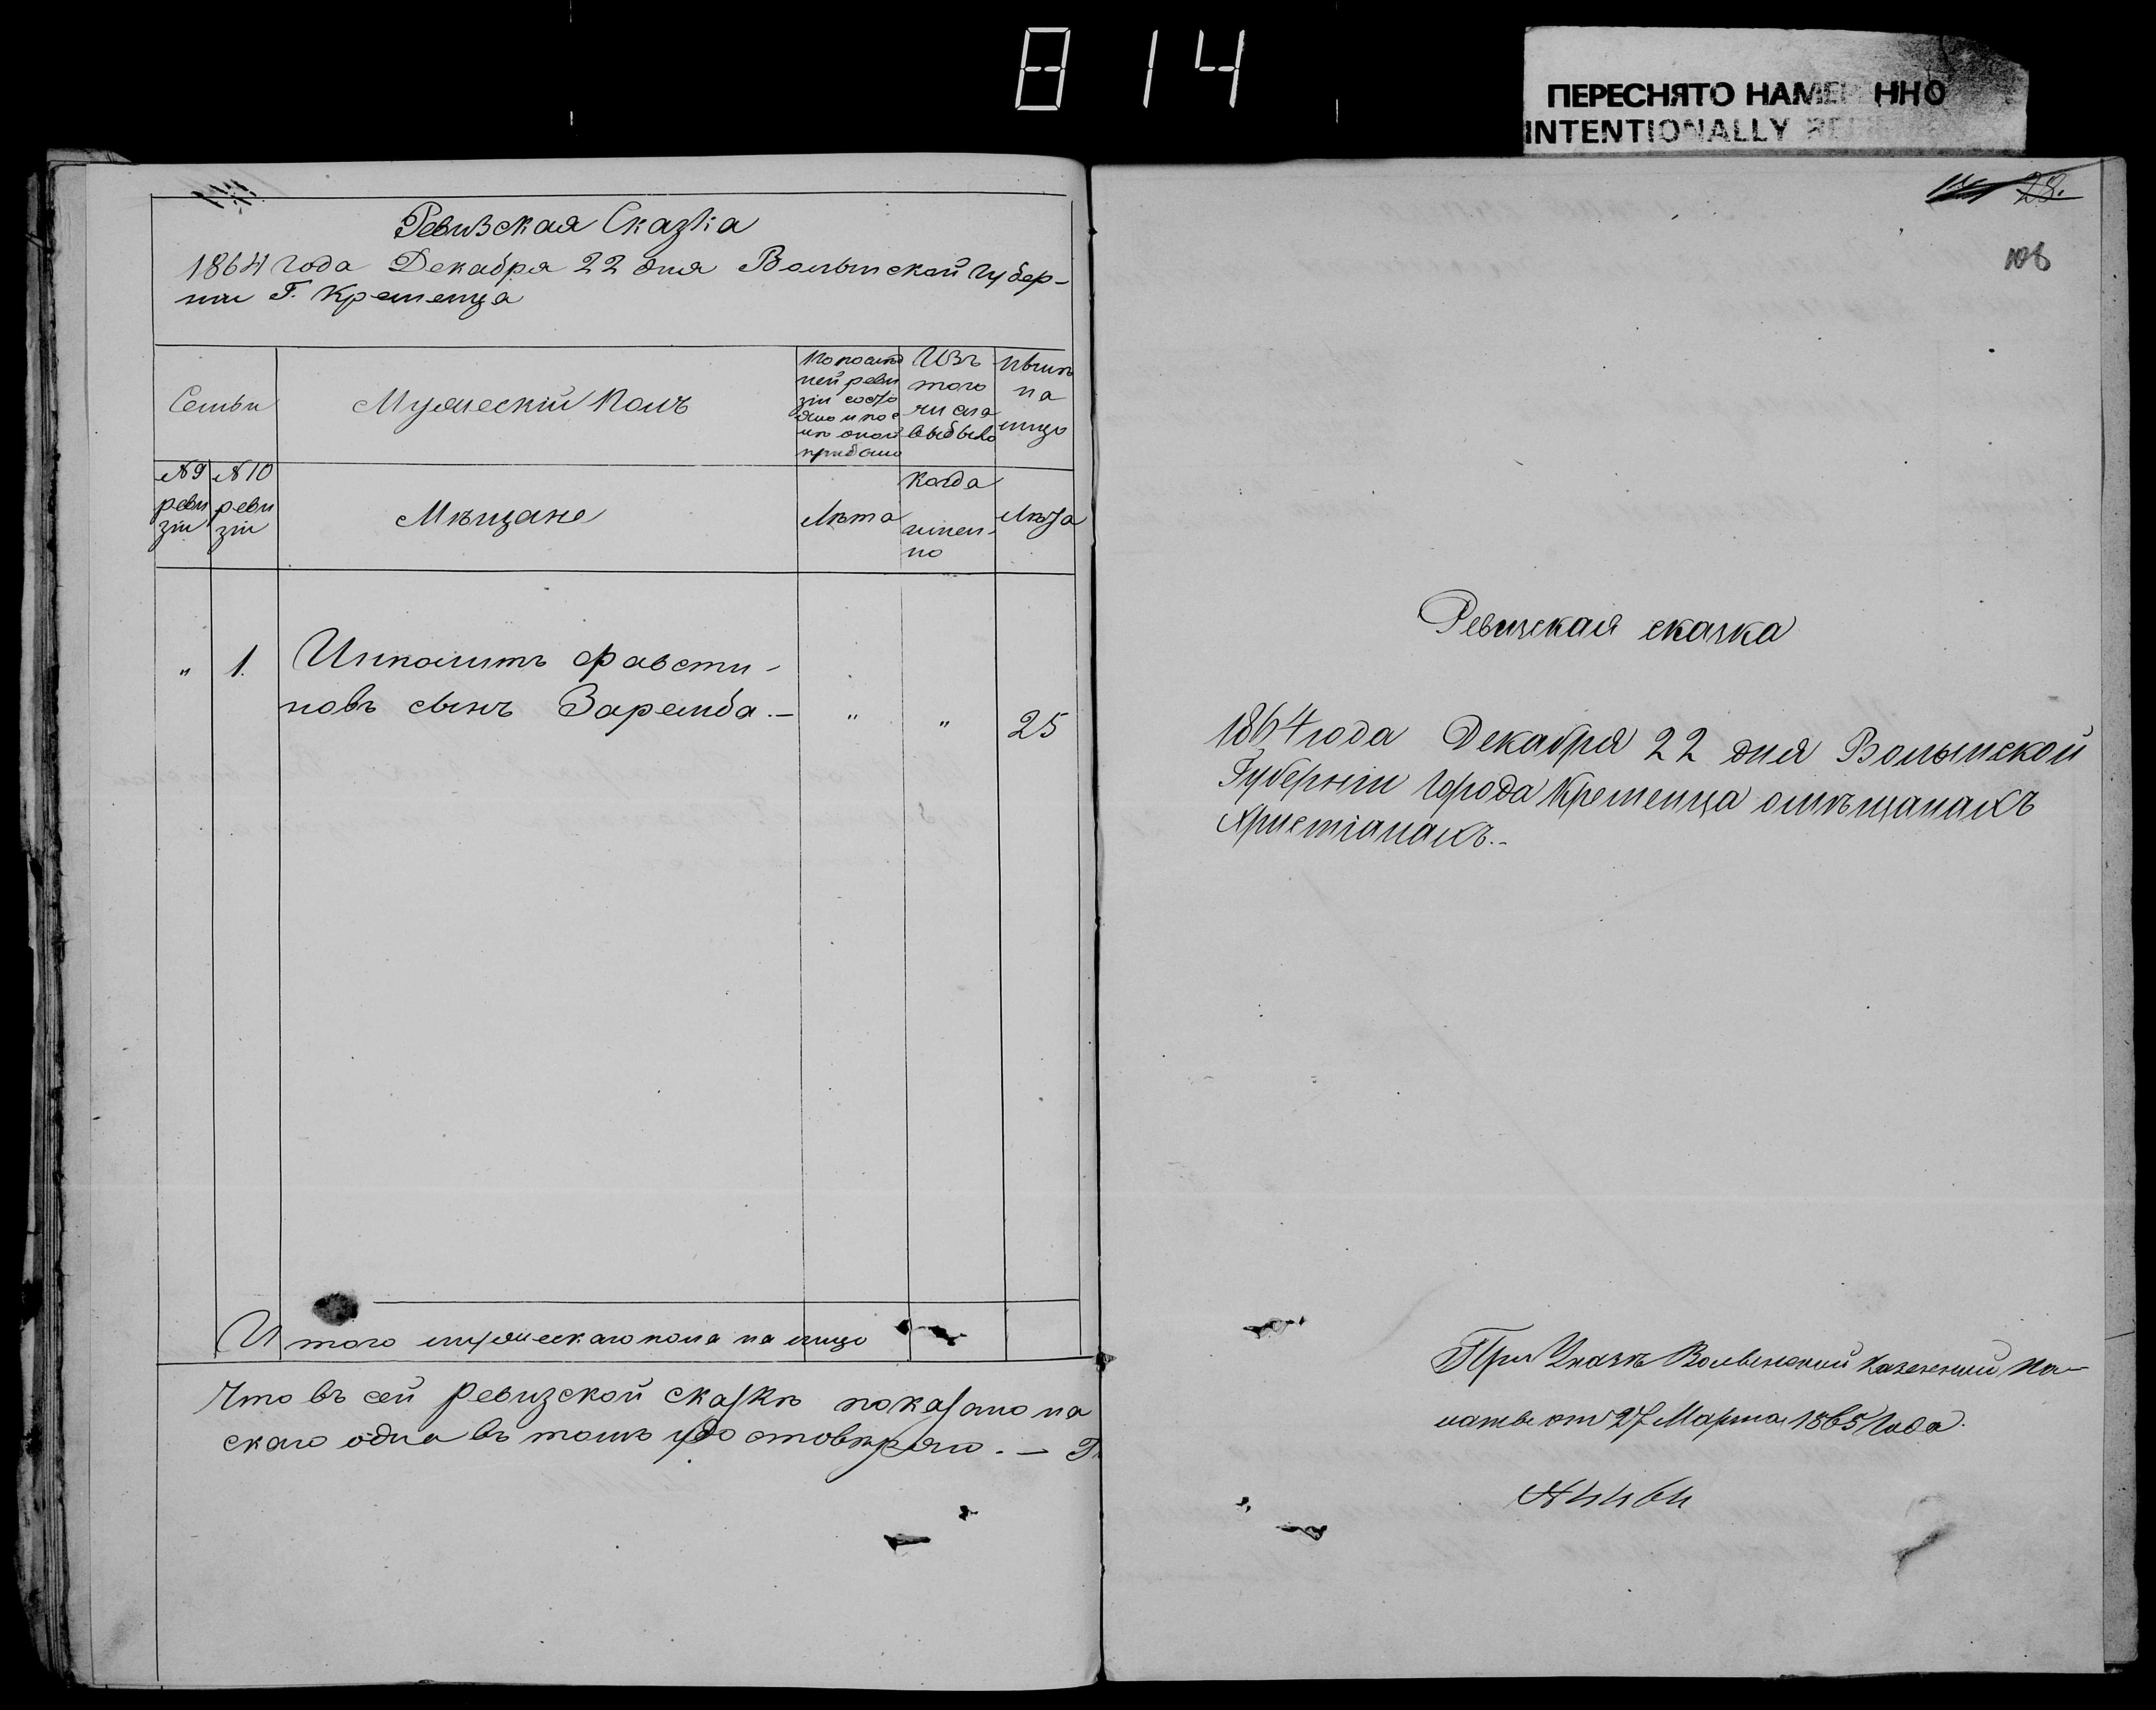 814
ПЕРЕСНЯТО НАМЕРЕННО
INTENTIONALLY
Ревизская Сказка
1864 года Декабря 22 дня Волынской Губер-
нiи Г. Кременца
Семьи
Мужескiй Полъ
По послѣд
ней реви
зiи состо
яло и посл
ѣ оной
прибыло
Изъ
того
числа
выбыло
Нынѣ
на
лицо
№9
реви
зiи
№10
реви
зiи
Мѣщане
Лѣта
Когда
имен-
но
Лѣта
" 1. Ипполитъ Фавсти-
новъ сынъ Заремба.- " " 25
Итого мужескаго пола на лицо
Что въ сей ревизской сказкѣ показано на
скаго одна въ томъ удостовѣряю. —
28.
108
Ревизская сказка
1864 года Декабря 22 дня Волынской
Губернiи Города Кременца о мѣщанахъ
Христiанахъ.-
При Указѣ Волынской Казенной Па-
латы от 27 Марта 1865 Года.
№ 4464